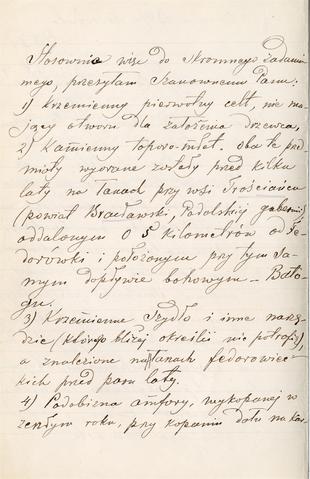 Stosownie więc do skromnego żądania
mego, przesyłam Szanownemu Panu:
1) Krzemienny pierwotny celt, nie ma-
jący otworu dla założenia drzewca,
2) Kamienny toporo-młot. oba te prze-
mioty wyorane zostały przed kilku
laty na łanach przy wsi Trościańcu
(powiat Bracławski, Podolskiej gubernii)
oddalonym o 5 kilometrów od Fe-
dorówki i położonym przy tym sa-
mym dopływie bohowym – Bato-
gu.
3) Krzemienne szydło i inne narzę-
dzie (którego bliżej określić nie potrafię)
a znalezione na łanach fedorowiec-
kich przed paru laty.
4) Podobizna amfory, wykopanej w
zeszłym roku, przy kopaniu dołu na kar-